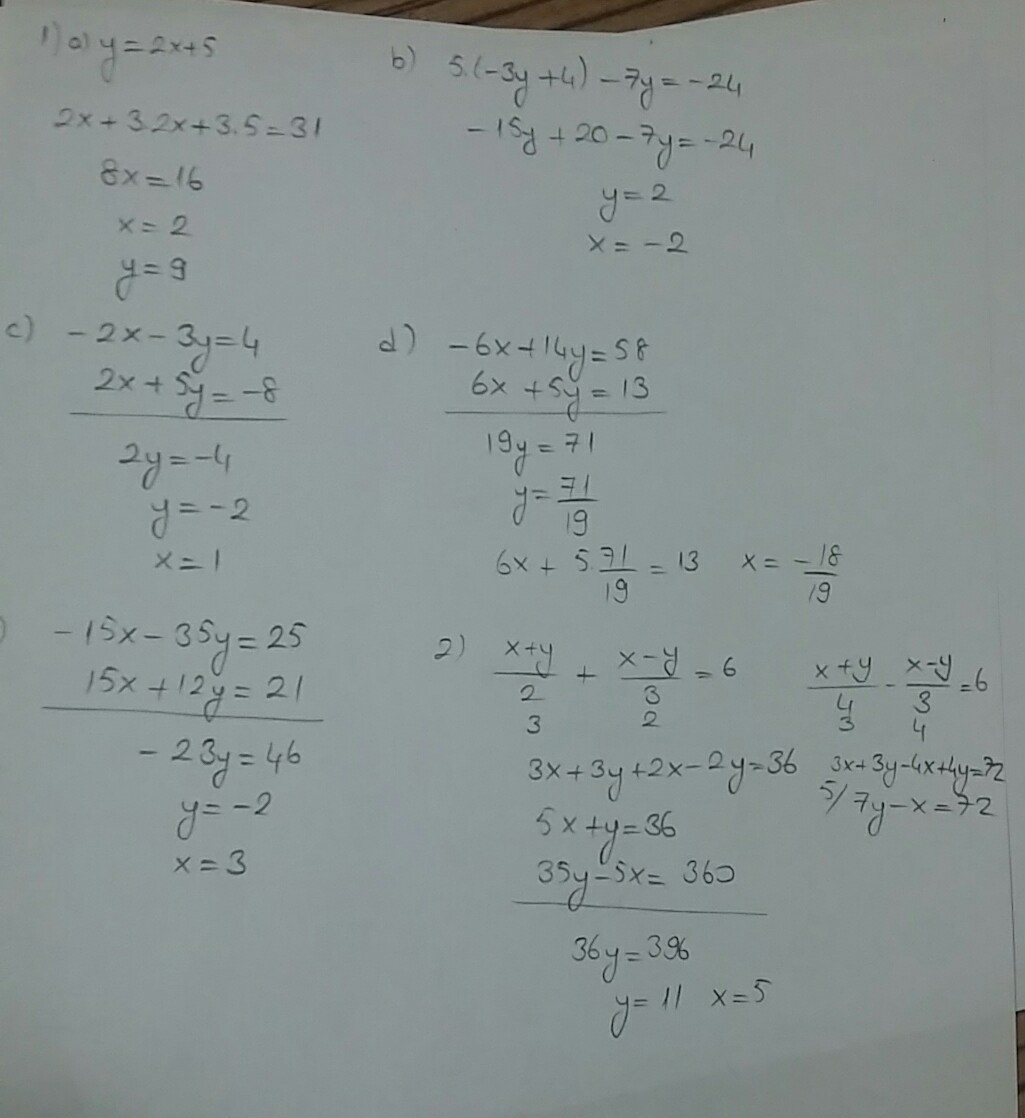 1) a) y = 2x+5
2x + 3.2x + 3.5 = 31
8x = 16
x = 2
y = 9
b) 5.(-3y + 4) - 7y = -24
-15y + 20 - 7y = -24
y = 2
x = -2
c) -2x - 3y = 4
2x + 5y = -8
2y = -4
y = -2
x = 1
d) -6x + 14y = 58
6x + 5y = 13
19y = 71
y = 71/19
6x + 5.71/19 = 13 x = -18/19
) -15x - 35y = 25
15x + 12y = 21
-23y = 46
y = -2
x = 3
2) x+y/2 + x-y/3 = 6
3 2
3x + 3y + 2x - 2y = 36
5x + y = 36
35y - 5x = 360
36y = 396
y = 11 x = 5
x+y/4 - x-y/3 = 6
3 4
3x + 3y - 4x + 4y = 72
5/ 7y - x = 72